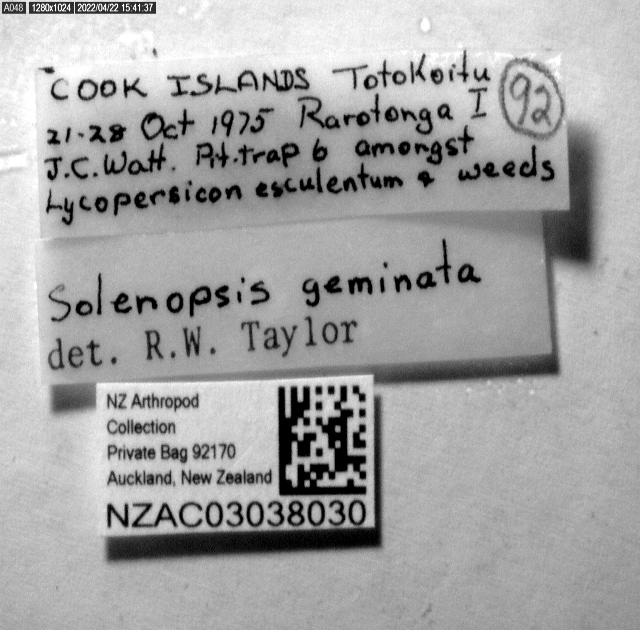 A048 1280x1024 2022/04/22 15:41:37
COOK ISLANDS Totokoitu
21-28 Oct 1975 Rarotonga I
92
J.C. Watt. Pit.trap 6 amongst
Lycopersicon esculentum & weeds
Solenopsis geminata
det. R.W. Taylor
NZ Arthropod
Collection
Private Bag 92170
Auckland, New Zealand
NZAC03038030